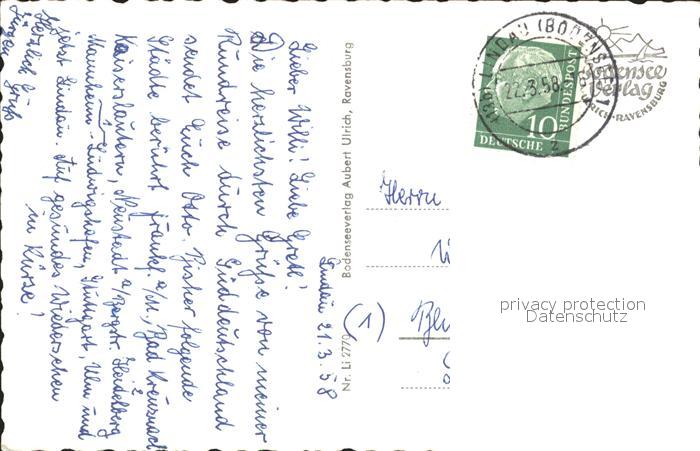 Lindau 21.3.58
Lieber Willi! Liebe Gretl!
Die herzlichsten Grüße von meiner
Rundreise durch Süddeutschland
sendet Euch Otto. Bisher folgende
Städte berührt: Frankf. a/M., Bad Kreuznach
Kaiserslautern, Neustadt a/Bergstr. Heidelberg
Mannheim-Ludwigshafen, Stuttgart, Ulm und
jetzt Lindau. Auf gesundes Wiedersehen
in Kürze!
Herzlich
Bodenseeverlag Aubert Ulrich, Ravensburg
Nr. Li 2720
LINDAU (BODENSEE)
22.3.58
2
10
DEUTSCHE
BUNDESPOST
Bodensee
Verlag
ULRICH-RAVENSBURG
Herrn
(1)
privacy protection
Datenschutz